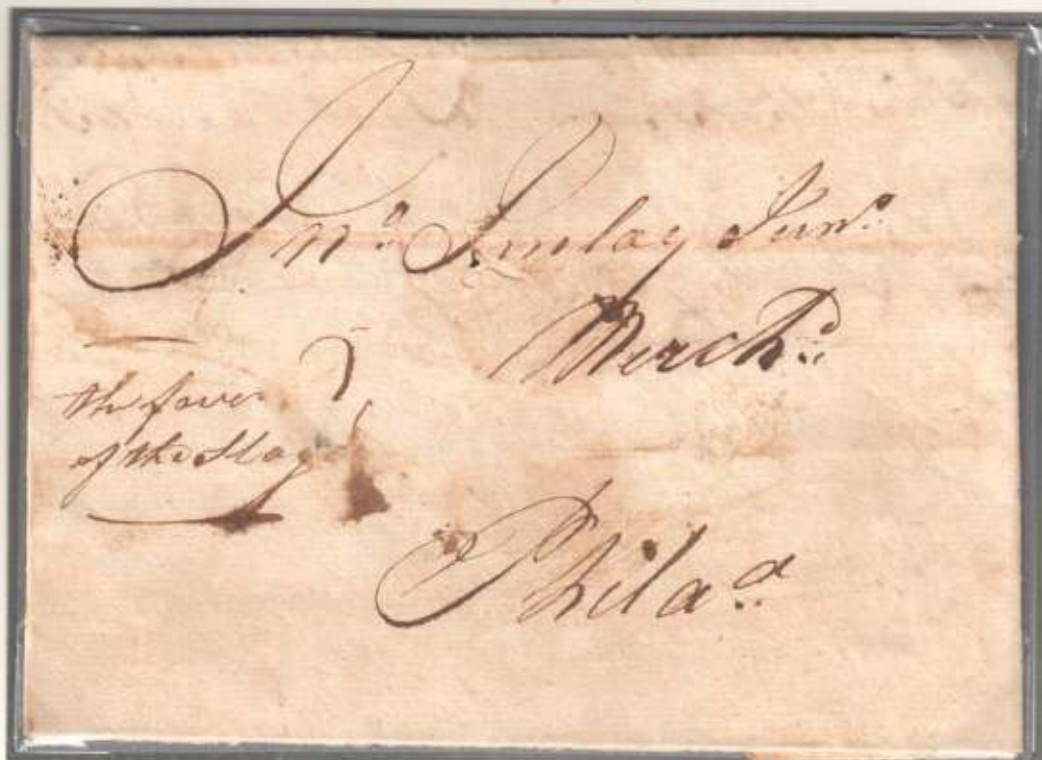 Jno. Imlay Junr.
Mercht.
the favor
of the Stage
Philada.